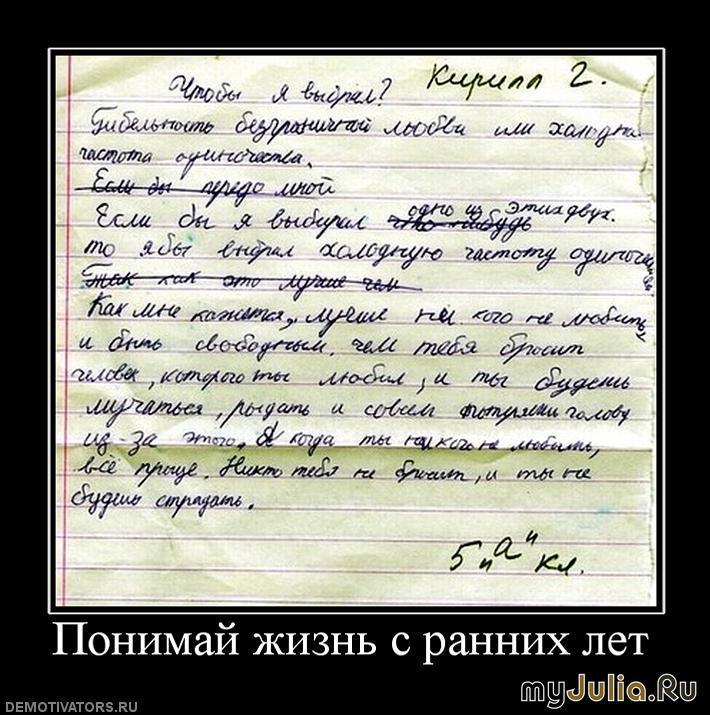 Кирилл Г.
Чтобы я выбрал?
Гибельность безграничной любви или холодная
частота одиночества.
Если бы передо мной
Если бы я выбирал что-нибудь одно из этих двух.
то я бы выбрал холодную частоту одиночества
Так как это лучше чем
Как мне кажется, лучше ни кого не любить,
и быть свободным, чем тебя бросит
человек, которого ты любил, и ты будешь
мучаться, рыдать и совсем голову
из-за этого. А когда ты ни кого не любишь,
всё проще. Никто тебя не бросит, и ты не
будешь страдать.
5 "а" кл.
Понимай жизнь с ранних лет
myJulia.Ru
DEMOTIVATORS.RU